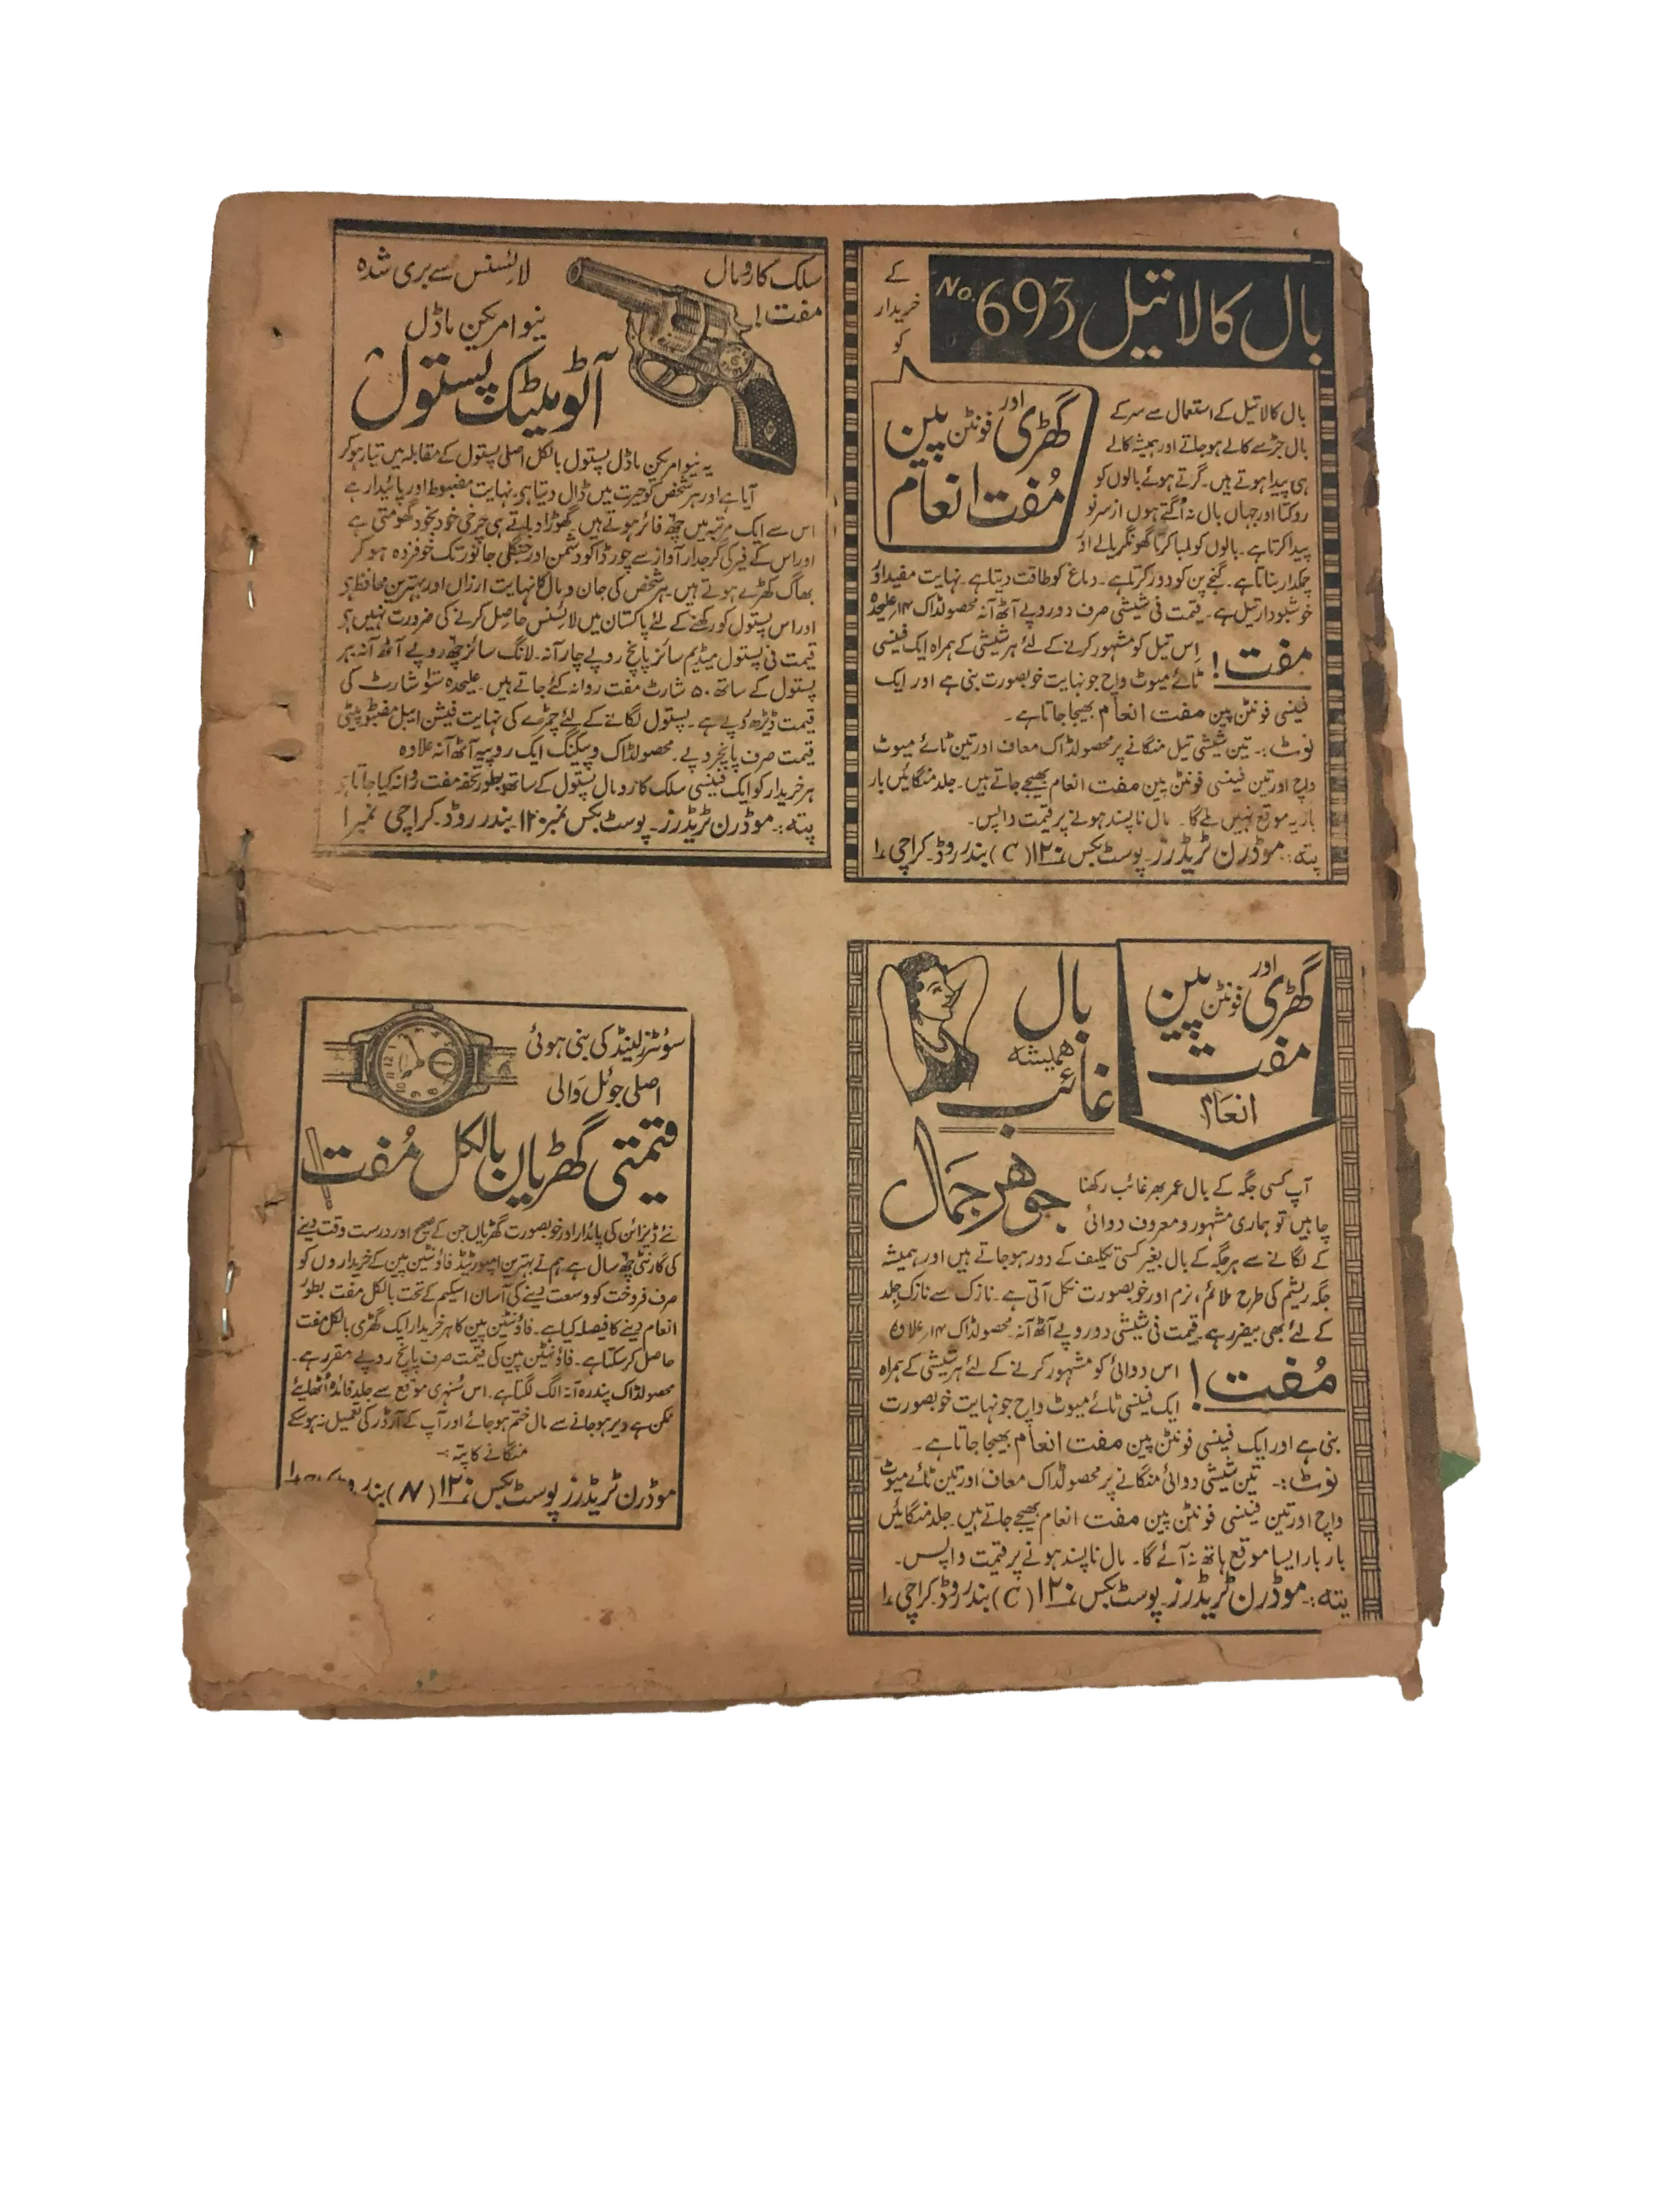 بال کالا تیل No. 693
کے
خریدار
کو
گھڑی اور فونٹن پین
مُفت انعام
بال کالا تیل کے استعمال سے سر کے
بال جڑ سے کالے ہو جاتے اور ہمیشہ کالے
ہی پیدا ہوتے ہیں۔ گرتے ہوئے بالوں کو
روکتا اور جہاں بال نہ اُگتے ہوں از سرِ نو
پیدا کرتا ہے۔ بالوں کو لمبا کرتا گھونگریالے اور
چمکدار بناتا ہے۔ گنجے پن کو دور کرتا ہے۔ دماغ کو طاقت دیتا ہے۔ نہایت مفید اور
خوشبودار تیل ہے۔ قیمت فی شیشی صرف دو روپے آٹھ آنہ محصولڈاک ۱۴؍ علیحدہ
مفت! اِس تیل کو مشہور کرنے کے لئے ہر شیشی کے ہمراہ ایک فینسی
ٹائے میوٹ واچ جو نہایت خوبصورت بنی ہے اور ایک
فینسی فونٹن پین مفت انعام بھیجا جاتا ہے۔
نوٹ:۔ تین شیشی تیل منگانے پر محصولڈاک معاف اور تین ٹائے میوٹ
واچ اور تین فینسی فونٹن پین مفت انعام بھیجے جاتے ہیں۔ جلد منگائیں بار
بار یہ موقع نہیں ملے گا۔ مال ناپسند ہونے پر قیمت واپس۔
پتہ:۔ موڈرن ٹریڈرز۔ پوسٹ بکس نمبر ۱۲۰ (C) بندر روڈ۔ کراچی ۱
سلک کا رومال
مفت!
لائسنس سے بری شدہ
نیو امریکن ماڈل
آٹومیٹک پستول
یہ نیو امریکن ماڈل پستول بالکل اصلی پستول کے مقابلہ میں تیار ہو کر
آیا ہے اور ہر شخص کو حیرت میں ڈال دیتا ہے۔ نہایت مضبوط اور پائیدار ہے
اس سے ایک مرتبہ میں چھ فائر ہوتے ہیں۔ گھوڑا دباتے ہی چرخی خود بخود گھومتی ہے
اور اس کے فیر کی گرجدار آواز سے چور ڈاکو دشمن اور جنگلی جانور تک خوفزدہ ہو کر
بھاگ کھڑے ہوتے ہیں۔ ہر شخص کی جان و مال کا نہایت ارزاں اور بہترین محافظ ہے
اور اس پستول کو رکھنے کے لئے پاکستان میں لائسنس حاصل کرنے کی ضرورت نہیں ہے
قیمت فی پستول میڈیم سائز پانچ روپے چار آنہ۔ لانگ سائز چھ روپے آٹھ آنہ ہر
پستول کے ساتھ ۵۰ شارٹ مفت روانہ کئے جاتے ہیں۔ علیحدہ سَو شارٹ کی
قیمت ڈیڑھ روپے ہے۔ پستول لگانے کے لئے چمڑے کی نہایت فیشن ایبل مضبوط پیٹی
قیمت صرف پانچ روپے۔ محصولڈاک و پیکنگ ایک روپیہ آٹھ آنہ علاوہ
ہر خریدار کو ایک فینسی سلک کا رومال پستول کے ساتھ بطور تحفہ مفت روانہ کیا جاتا ہے
پتہ:۔ موڈرن ٹریڈرز۔ پوسٹ بکس نمبر ۱۲۰ بندر روڈ۔ کراچی نمبر ۱
گھڑی اور فونٹن پین
مفت
انعام
بال
ہمیشہ
غائب
جوہر جمال
آپ کسی جگہ کے بال عمر بھر غائب رکھنا
چاہیں تو ہماری مشہور و معروف دوائی
کے لگانے سے ہر جگہ کے بال بغیر کسی تکلیف کے دور ہو جاتے ہیں اور ہمیشہ
جگہ ریشم کی طرح ملائم، نرم اور خوبصورت نکل آتی ہے۔ نازک سے نازک جلد
کے لئے بھی بیضرر ہے۔ قیمت فی شیشی دو روپے آٹھ آنہ۔ محصولڈاک ۱۴؍ علاوہ
مُفت! اس دوائی کو مشہور کرنے کے لئے ہر شیشی کے ہمراہ
ایک فینسی ٹائے میوٹ واچ جو نہایت خوبصورت
بنی ہے اور ایک فینسی فونٹن پین مفت انعام بھیجا جاتا ہے۔
نوٹ:۔ تین شیشی دوائی منگانے پر محصولڈاک معاف اور تین ٹائے میوٹ
واچ اور تین فینسی فونٹن پین مفت انعام بھیجے جاتے ہیں۔ جلد منگائیں
بار بار ایسا موقع ہاتھ نہ آئے گا۔ مال ناپسند ہونے پر قیمت واپس۔
پتہ:۔ موڈرن ٹریڈرز۔ پوسٹ بکس نمبر ۱۲۰ (C) بندر روڈ۔ کراچی ۱
سوئٹزرلینڈ کی بنی ہوئی
اصلی جوئل والی
قیمتی گھڑیاں بالکل مُفت
نئے ڈیزائن کی پائدار اور خوبصورت گھڑیاں جن کے صحیح اور درست وقت دینے
کی گارنٹی چھ سال ہے ہم نے بہترین امپورٹیڈ فاؤنٹین پین کے خریداروں کو
صرف فروخت کو وسعت دینے کی آسان اسکیم کے تحت بالکل مفت بطور
انعام دینے کا فیصلہ کیا ہے۔ فاؤنٹین پین کا ہر خریدار ایک گھڑی بالکل مفت
حاصل کر سکتا ہے۔ فاؤنٹین پین کی قیمت صرف پانچ روپے مقرر ہے۔
محصولڈاک پندرہ آنہ الگ لگتا ہے۔ اس سُنہری موقع سے جلد فائدہ اُٹھائیے
ممکن ہے دیر ہو جانے سے مال ختم ہو جائے اور آپ کے آرڈر کی تعمیل نہ ہو سکے
منگانے کا پتہ:۔
موڈرن ٹریڈرز پوسٹ بکس نمبر ۱۲۰ (N) بندر